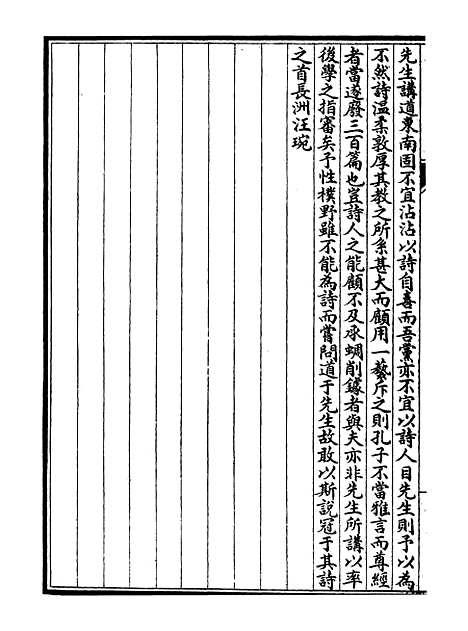 先生講道東南固不宜沾沾以詩自喜而吾黨亦不宜以詩人目先生則予以為
不然詩溫柔敦厚其教之所系甚大而顧用一藝斥之則孔子不當雅言而尊經
者當遂廢三百篇也豈詩人之能顧不及承蜩削鐻者與夫亦非先生所講以率
後學之指審矣予性樸野雖不能為詩而嘗問道于先生故敢以斯說冠于其詩
之首長洲汪琬